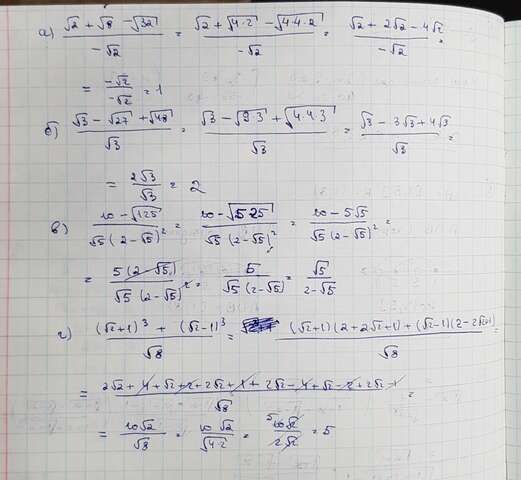 а) (√2 + √8 - √32)/(-√2) = (√2 + √(4·2) - √(4·4·2))/(-√2) = (√2 + 2√2 - 4√2)/(-√2) =
= (-√2)/(-√2) = 1
б) (√3 - √27 + √48)/√3 = (√3 - √(9·3) + √(4·4·3))/√3 = (√3 - 3√3 + 4√3)/√3 =
= 2√3/√3 = 2
в) (10 - √125)/(√5(2-√5)²) = (10 - √(5·25))/(√5(2-√5)²) = (10 - 5√5)/(√5(2-√5)²) =
= 5(2-√5)/(√5(2-√5)²) = 5/(√5(2-√5)) = √5/(2-√5)
г) ((√2+1)³ + (√2-1)³)/√8 = ((√2+1)(2+2√2+1) + (√2-1)(2-2√2+1))/√8 =
= (2√2 + 4 + √2 + 2 + 2√2 + 1 + 2√2 - 4 + √2 - 2 + 2√2 - 1)/√8 =
= 10√2/√8 = 10√2/√(4·2) = 10√2/2√2 = 5